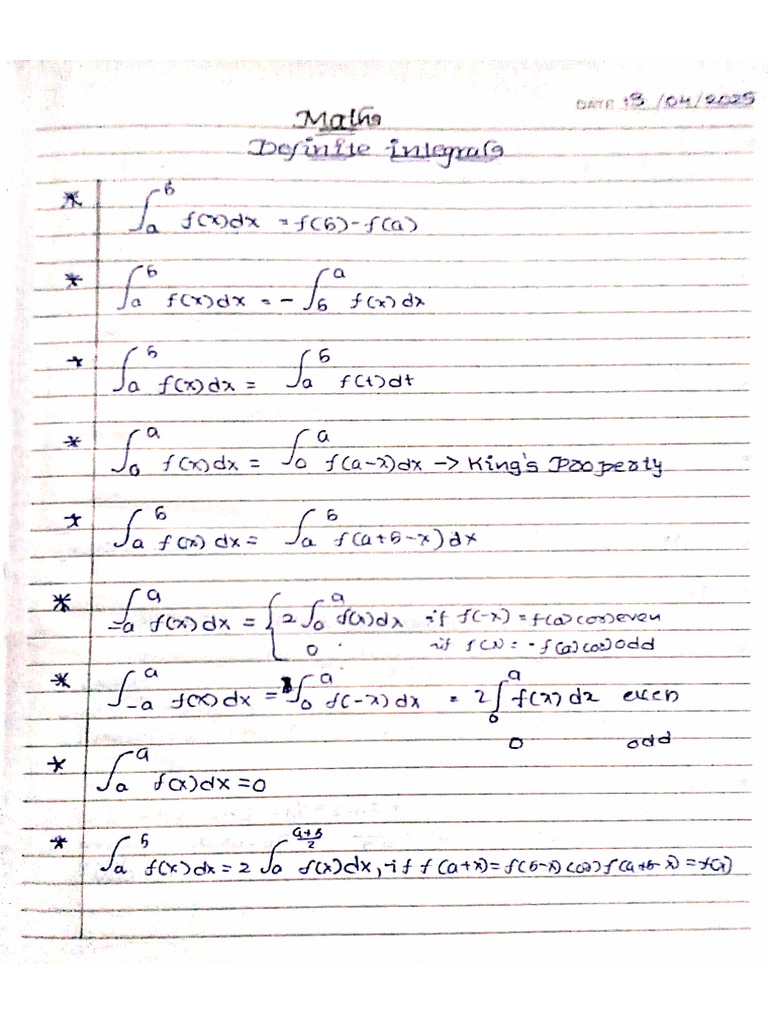 DATE 13/04/2025
Maths
Definite integrals
* ∫_a^b f(x)dx = f(b)-f(a)
* ∫_a^b f(x)dx = - ∫_b^a f(x)dx
* ∫_a^b f(x)dx = ∫_a^b f(t)dt
* ∫_0^a f(x)dx = ∫_0^a f(a-x)dx -> King's Property
* ∫_a^b f(x)dx = ∫_a^b f(a+b-x)dx
* ∫_-a^a f(x)dx = { 2 ∫_0^a f(x)dx if f(-x) = f(a) (or) even
0 if f(x) = -f(a) (or) odd
* ∫_-a^a f(x)dx = ∫_0^a f(-x)dx = 2∫_0^a f(x)dx even
0 odd
* ∫_a^a f(x)dx = 0
* ∫_a^b f(x)dx = 2 ∫_a^{a+b/2} f(x)dx, if f(a+x) = f(b-x) (or) f(a+b-x) = f(x)